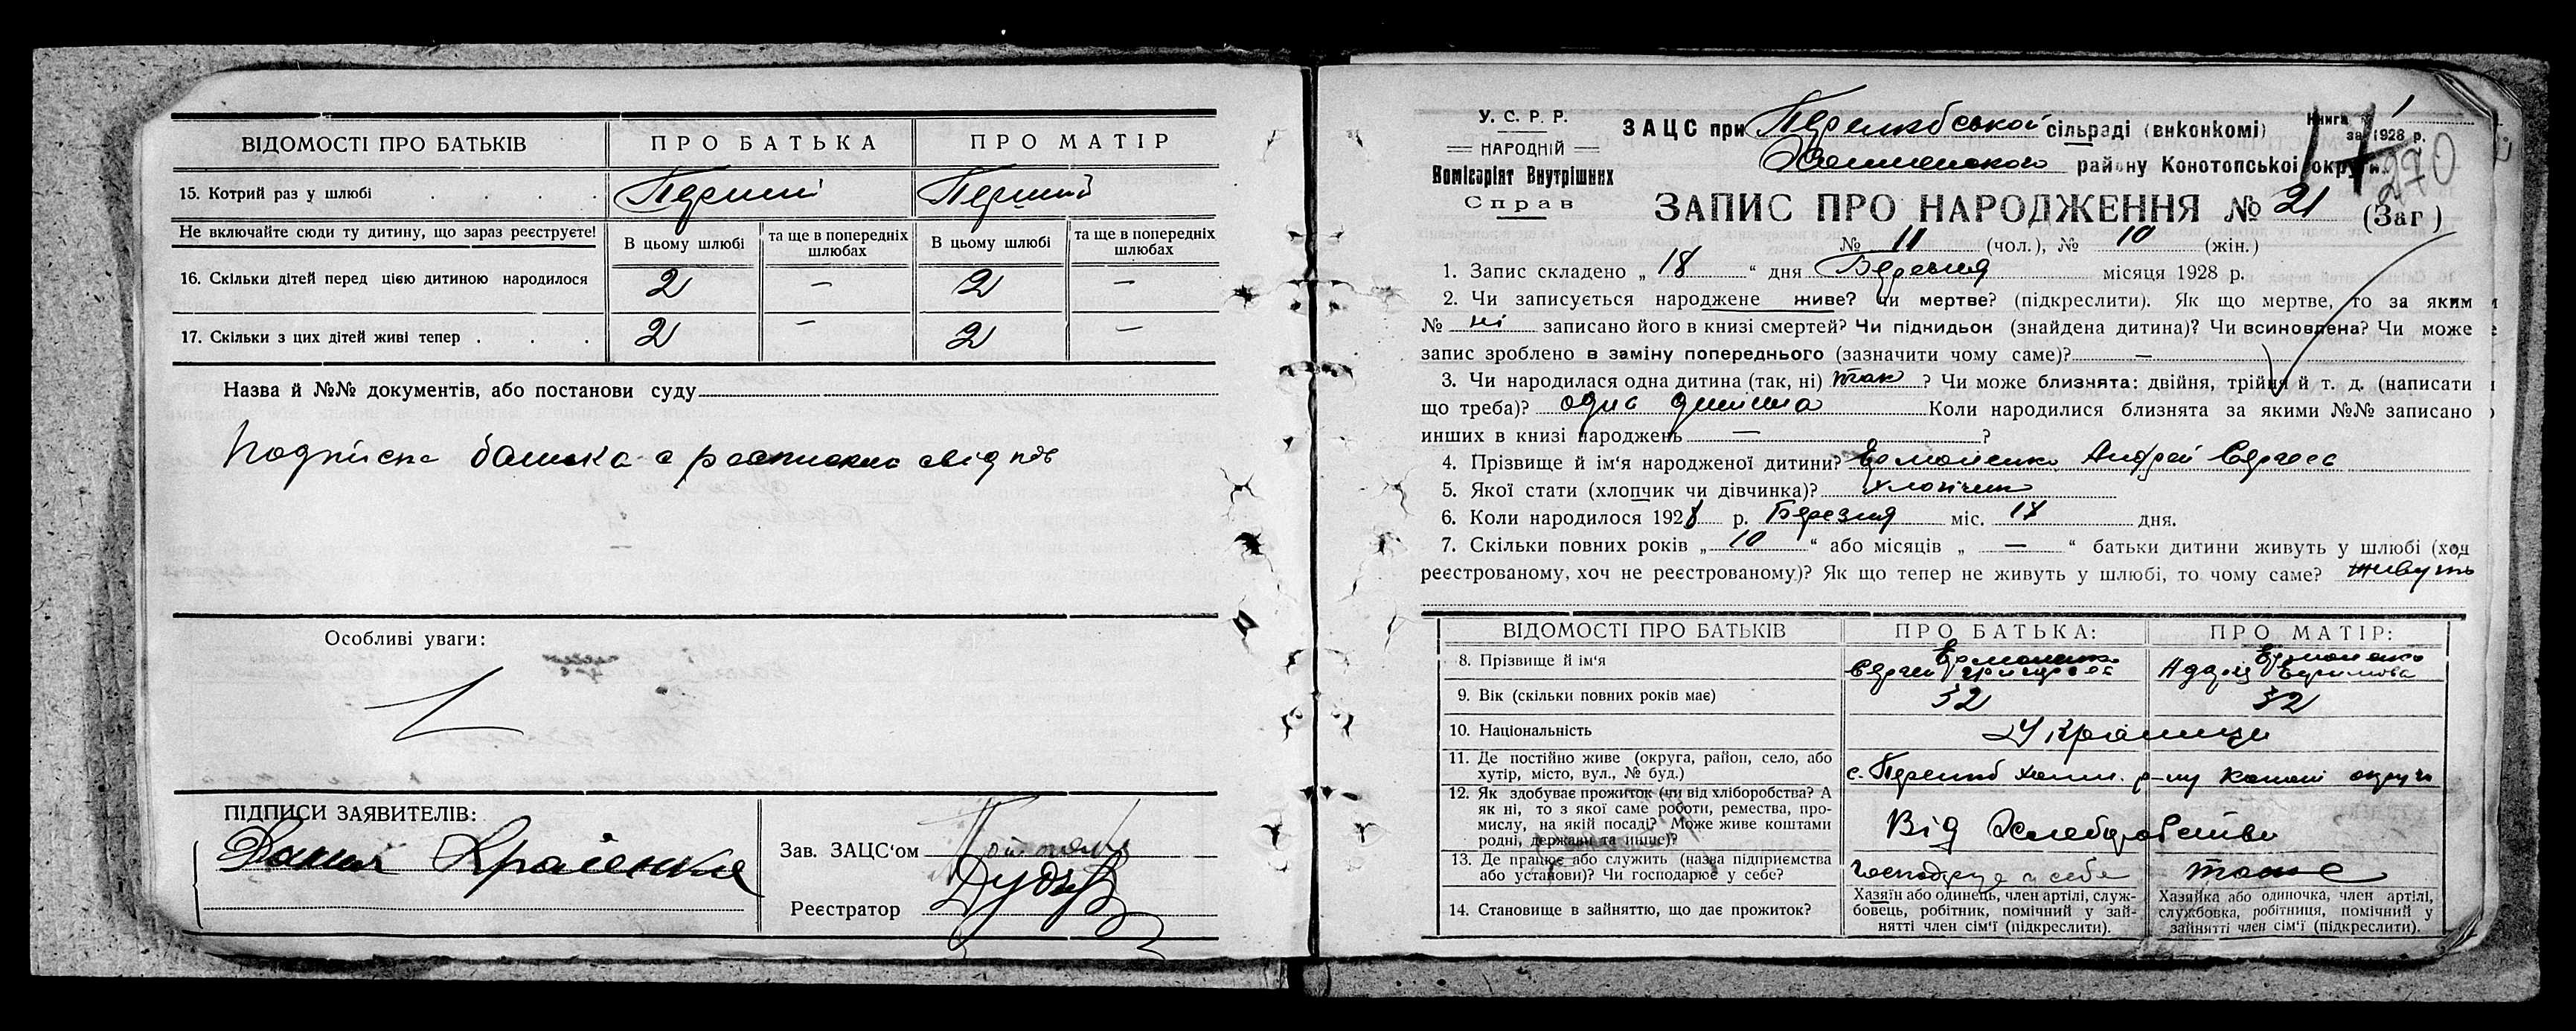 ВІДОМОСТІ ПРО БАТЬКІВ ПРО БАТЬКА ПРО МАТІР
15. Котрий раз у шлюбі . . . . Перший Перший
Не включайте сюди ту дитину, що зараз реєструєте! В цьому шлюбі та ще в попередніх шлюбах В цьому шлюбі та ще в попередніх шлюбах
16. Скільки дітей перед цією дитиною народилося 2 — 2 —
17. Скільки з цих дітей живі тепер . . . 2 — 2 —
Назва й №№ документів, або постанови суду
Подписка батька о
Особливі уваги:
ПІДПИСИ ЗАЯВИТЕЛІВ:
Зав. ЗАЦС'ом
Реєстратор
У. С. Р. Р.
НАРОДНІЙ
Комісаріят Внутрішніх
Справ
ЗАЦС при сільраді (виконкомі)
району Конотопської округи
Книга № 1
за 1928 р.
270
ЗАПИС ПРО НАРОДЖЕННЯ № 21 (Заг)
№ 11 (чол.), № 10 (жін.)
1. Запис складено „ 18 “ дня Березня місяця 1928 р.
2. Чи записується народжене живе? чи мертве? (підкреслити). Як що мертве, то за яким
№ ні записано його в книзі смертей? Чи підкидьок (знайдена дитина)? Чи всиновлена? Чи може
запис зроблено в заміну попереднього (зазначити чому саме)? —
3. Чи народилася одна дитина (так, ні) так ? Чи може близнята: двійня, трійня й т. д. (написати
що треба)? одна дитина Коли народилися близнята за якими №№ записано
инших в книзі народжень — ?
4. Прізвище й ім'я народженої дитини? Ермоленко Андрей Сергеев
5. Якої стати (хлопчик чи дівчинка)? хлопчик
6. Коли народилося 1928 р. Березня міс. 17 дня.
7. Скільки повних років „ 10 “ або місяців „ — “ батьки дитини живуть у шлюбі (хоч
реєстрованому, хоч не реєстрованому)? Як що тепер не живуть у шлюбі, то чому саме? живуть
ВІДОМОСТІ ПРО БАТЬКІВ ПРО БАТЬКА: ПРО МАТІР:
8. Прізвище й ім'я Ермоленко Сергей Ермоленко
9. Вік (скільки повних років має) 32 32
10. Національність Українці
11. Де постійно живе (округа, район, село, або
хутір, місто, вул., № буд.) с. р-ну округи
12. Як здобуває прожиток (чи від хліборобства? А
як ні, то з якої саме роботи, ремества, про-
мислу, на якій посаді? Може живе коштами
родні, держави та инше)? Від Хлеборобства
13. Де працює або служить (назва підприємства
або установи)? Чи господарює у себе? Господарує у себе тоже
14. Становище в зайняттю, що дає прожиток?
Хазяїн або одинець, член артілі, служ-
бовець, робітник, помічний у зай-
нятті член сім'ї (підкреслити).
Хазяйка або одиночка, член артілі,
службовка, робітниця, помічний у
зайнятті член сім'ї (підкреслити).